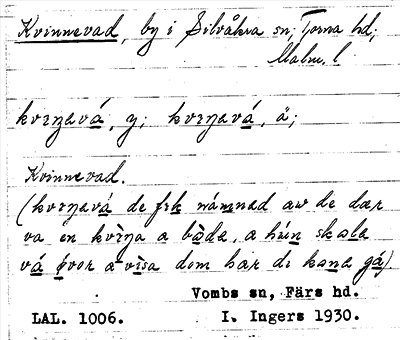 Kvinnevad, by i Silvåkra sn; Torna hd;
Malm. l
kvɪŋavá, y; kvɪŋavá, ä;
Kvinnevad.
(kvɪŋavá de fɪk námned aw de dær
va én kvìŋa a bàda, a hún skala
vá ívor a vìsa dom har di kana gá)
Vombs sn, Färs hd.
LAL. 1006. I. Ingers 1930.